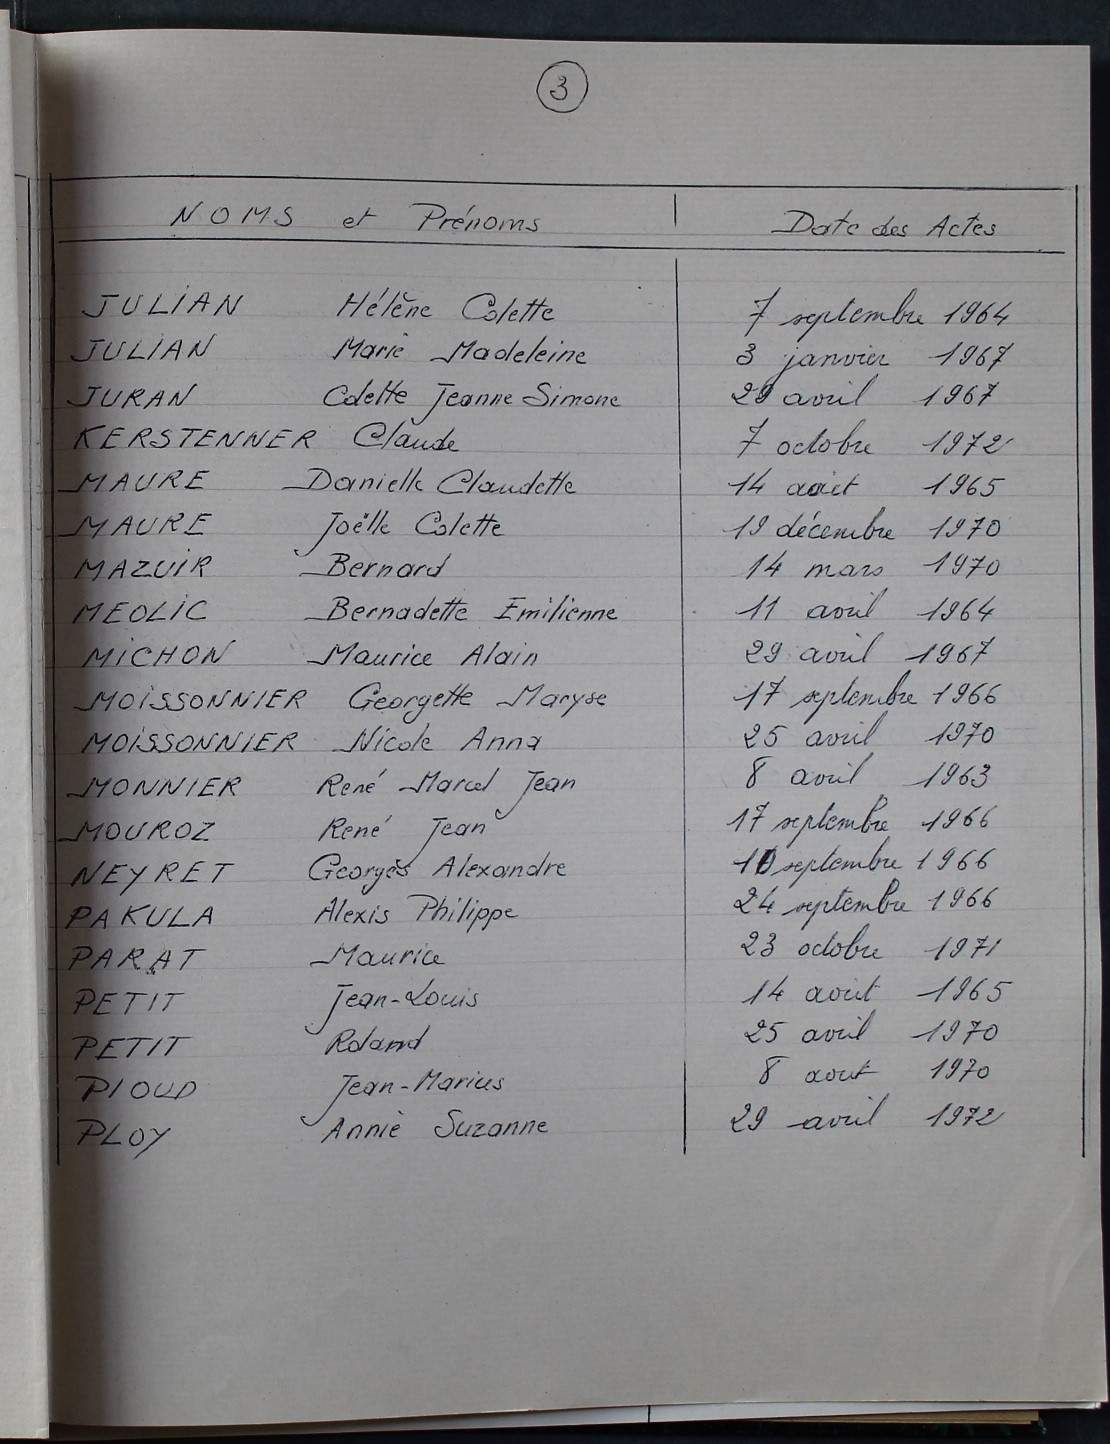 3
NOMS et Prénoms Date des Actes
JULIAN Hélène Colette 7 septembre 1964
JULIAN Marie Madeleine 3 janvier 1967
JURAN Colette Jeanne Simone 29 avril 1967
KERSTENNER Claude 7 octobre 1972
MAURE Danielle Claudette 14 août 1965
MAURE Joëlle Colette 19 décembre 1970
MAZUIR Bernard 14 mars 1970
MEOLIC Bernadette Emilienne 11 avril 1964
MICHON Maurice Alain 29 avril 1967
MOISSONNIER Georgette Maryse 17 septembre 1966
MOISSONNIER Nicole Anna 25 avril 1970
MONNIER René Marcel Jean 8 avril 1963
MOUROZ René Jean 17 septembre 1966
NEYRET Georges Alexandre 10 septembre 1966
PAKULA Alexis Philippe 24 septembre 1966
PARAT Maurice 23 octobre 1971
PETIT Jean-Louis 14 août 1965
PETIT Roland 25 avril 1970
PIOUD Jean-Marius 8 aout 1970
PLOY Annie Suzanne 29 avril 1972